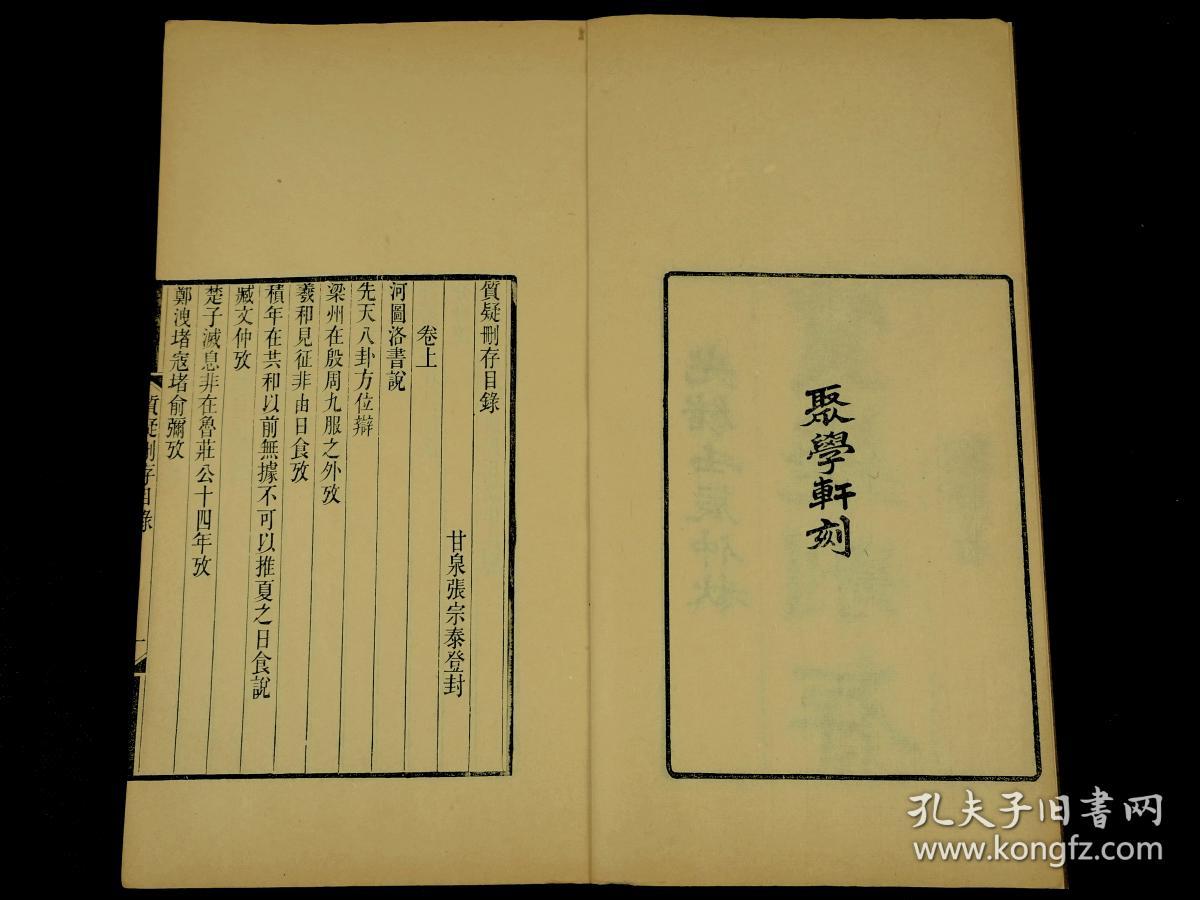 聚學軒刻
質疑刪存目錄
甘泉張宗泰登封
卷上
河圖洛書說
先天八卦方位辯
梁州在殷周九服之外攷
羲和見征非由日食攷
積年在共和以前無據不可以推夏之日食說
臧文仲攷
楚子滅息非在魯莊公十四年攷
鄭洩堵寇堵俞彌攷
質疑刪存目錄
一
孔夫子旧书网
www.kongfz.com